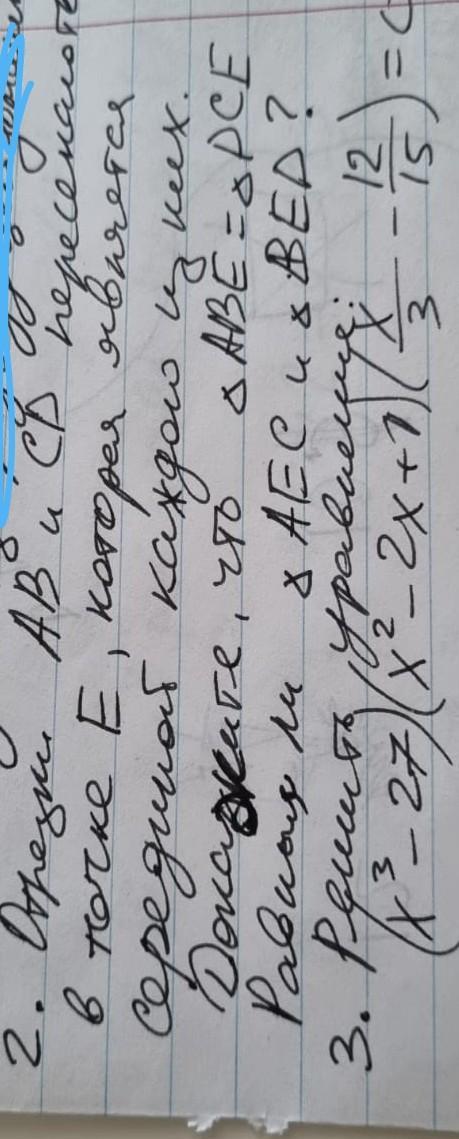 2. Отрезки АВ и СD пересекают
в точке Е, которая является
серединой каждого из них.
Докажите, что △ABE = △DCE
Равны ли △AEC и △BED?
3. Решить уравнение:
(x³ - 27)(x² - 2x + 1)(x/3 - 12/15) =